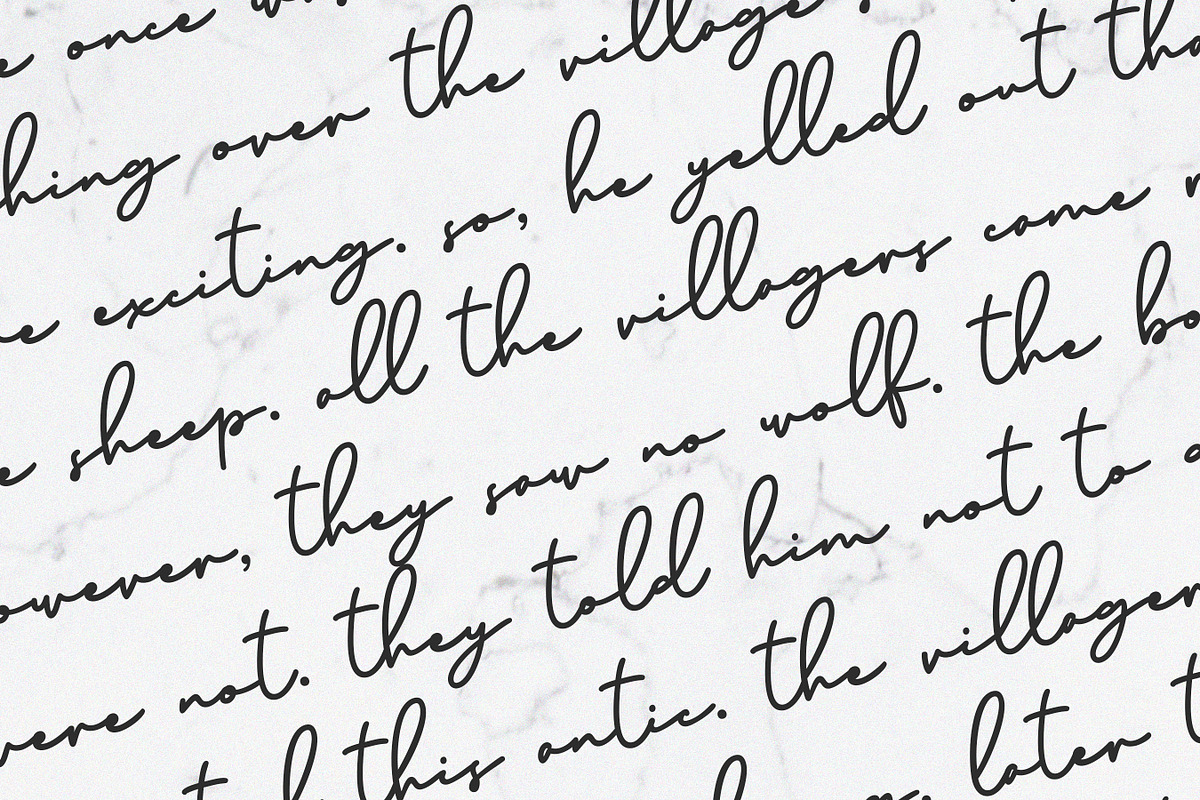 e once
hing over the village
e exciting. so, he yelled out tha
e sheep. all the villagers came
owever, they saw no wolf. the bo
were not. they told him not to a
this antic. the villager
later t